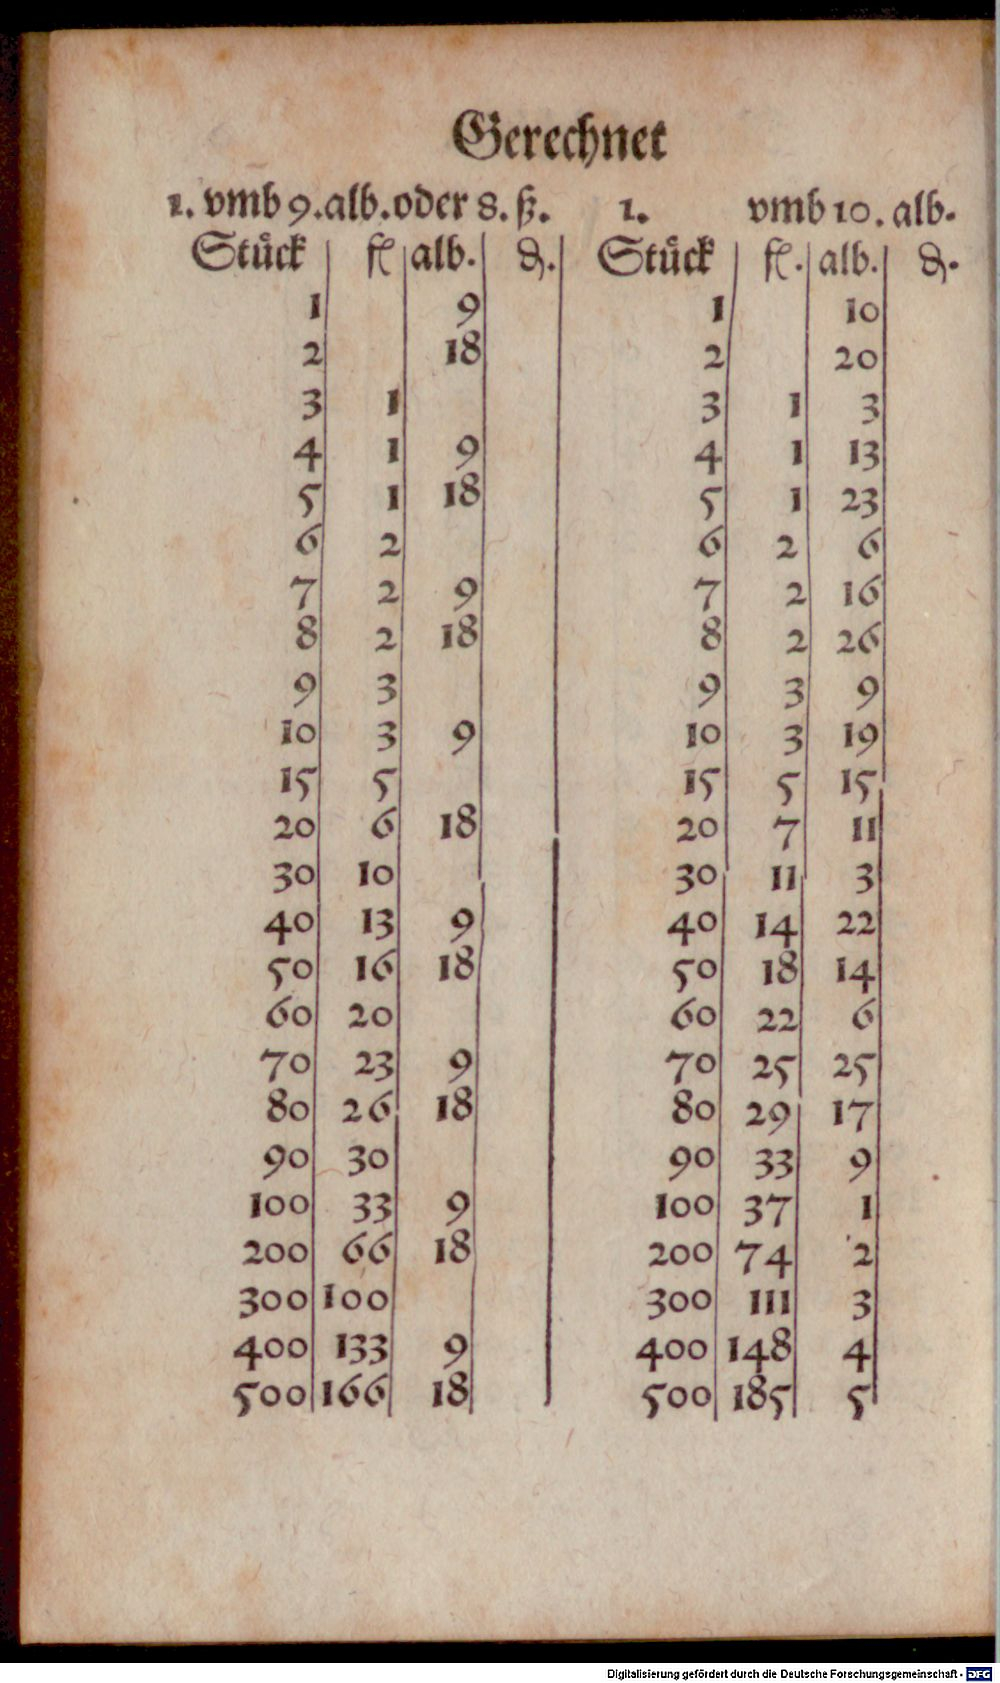 Gerechnet
1. vmb 9. alb. oder 8. ß. 1. vmb 10. alb.
Stůck fl alb. ₰. Stůck fl. alb. ₰.
1 9 1 10
2 18 2 20
3 1 3 1 3
4 1 9 4 1 13
5 1 18 5 1 23
6 2 6 2 6
7 2 9 7 2 16
8 2 18 8 2 26
9 3 9 3 9
10 3 9 10 3 19
15 5 15 5 15
20 6 18 20 7 11
30 10 30 11 3
40 13 9 40 14 22
50 16 18 50 18 14
60 20 60 22 6
70 23 9 70 25 25
80 26 18 80 29 17
90 30 90 33 9
100 33 9 100 37 1
200 66 18 200 74 2
300 100 300 111 3
400 133 9 400 148 4
500 166 18 500 185 5
Digitalisierung gefördert durch die Deutsche Forschungsgemeinschaft - DFG